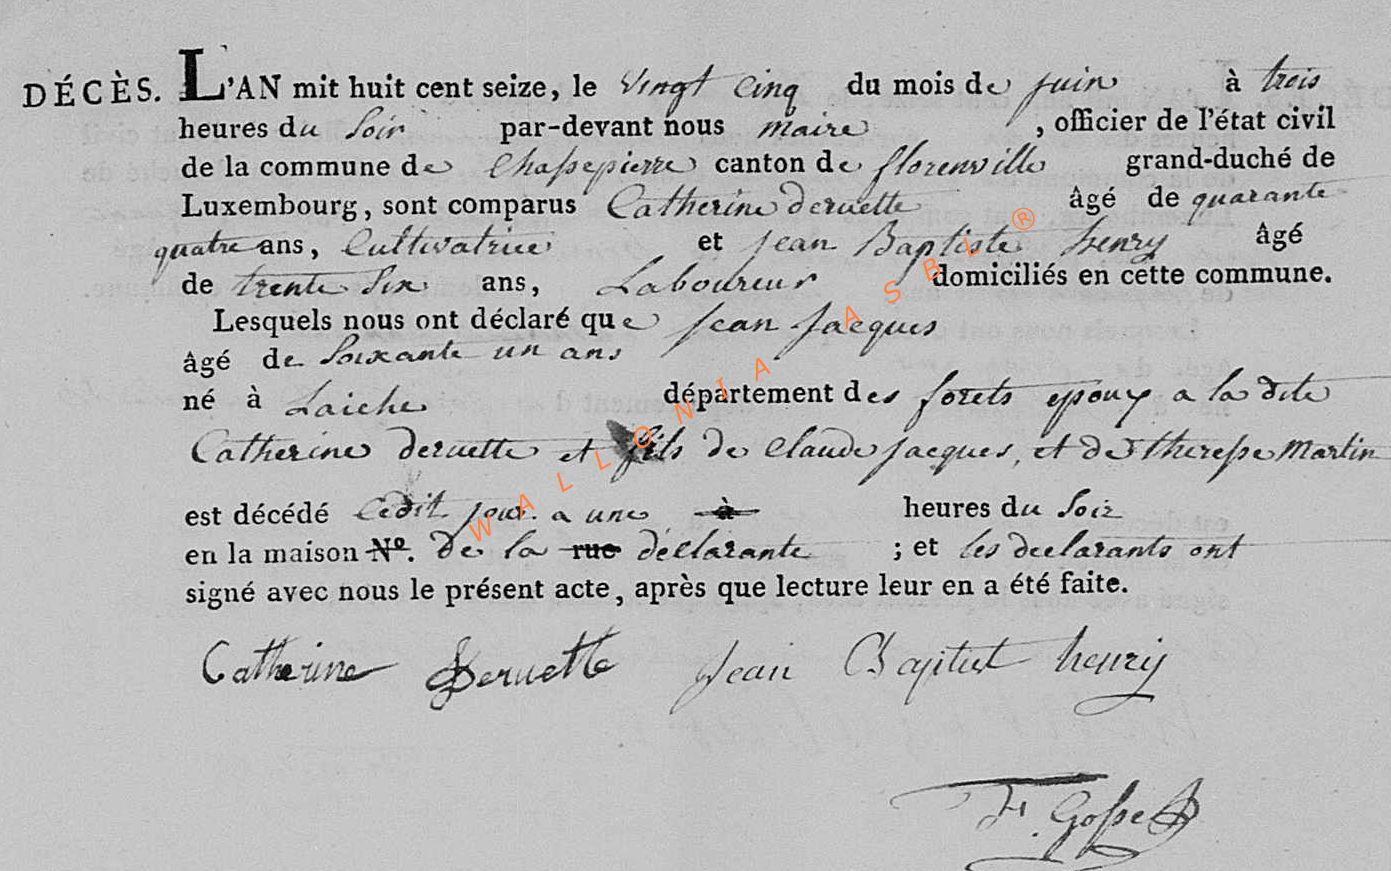 DÉCÈS. L'AN mit huit cent seize, le vingt cinq du mois de juin à trois
heures du Soir par-devant nous maire, officier de l'état civil
de la commune de Chassepierre canton de florenville grand-duché de
Luxembourg, sont comparus Catherine deruette âgé de quarante
quatre ans, Cultivatrice et jean Baptiste henry âgé
de trente Six ans, Laboureur domiciliés en cette commune.
Lesquels nous ont déclaré que jean jacques
âgé de Soixante un ans
né à Laiche département des forets epoux a la dite
Catherine deruette et fils de Claude jacques, et de theresse Martin
est décédé Cedit jour a une à heures du Soir
en la maison N°. de la rue déclarante ; et les declarants ont
signé avec nous le présent acte, après que lecture leur en a été faite.
Catherine Deruette jean Baptist henry
F. Gosse
WALLONIA ASBL ®